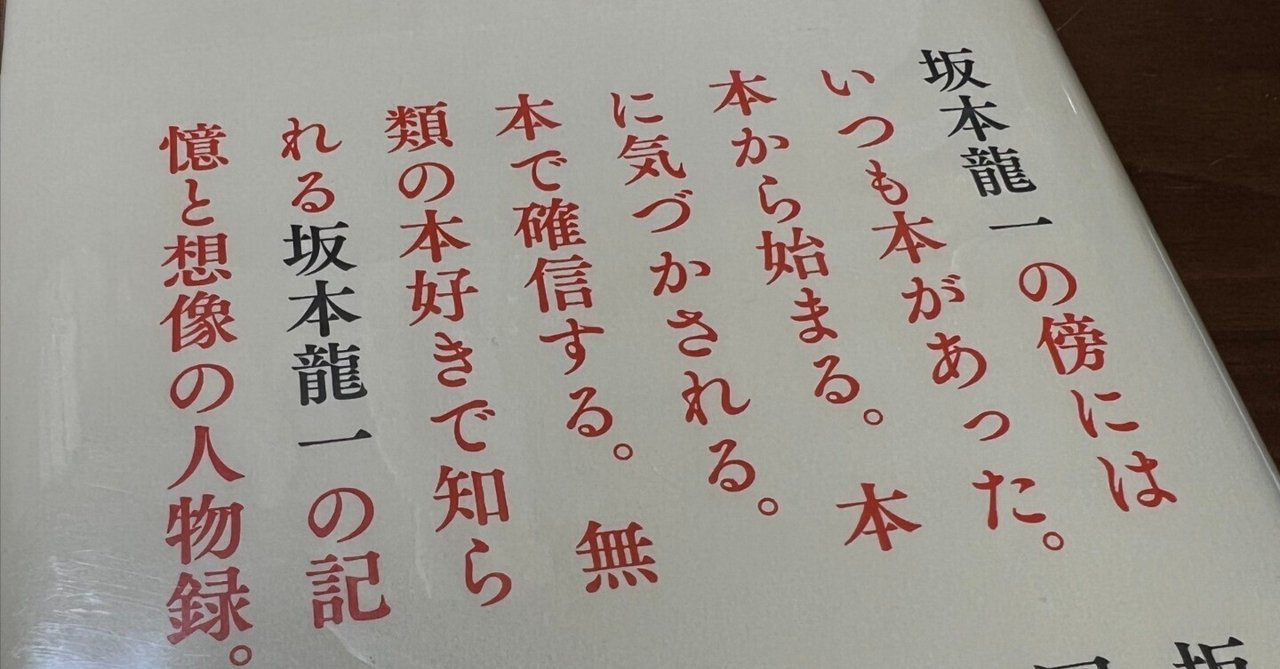 坂本龍一の傍には
いつも本があった。
本から始まる。本
に気づかされる。
本で確信する。無
類の本好きで知ら
れる坂本龍一の記
憶と想像の人物録。
坂